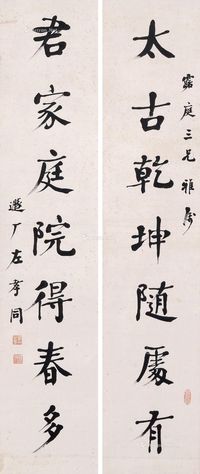 太古乾坤隨處有
露庭三兄雅屬
君家庭院得春多
遯厂左孝同